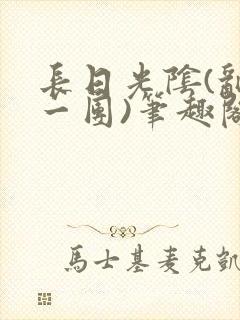 長日光陰(亂
一團)筆趣閣
馬士基麥克凱